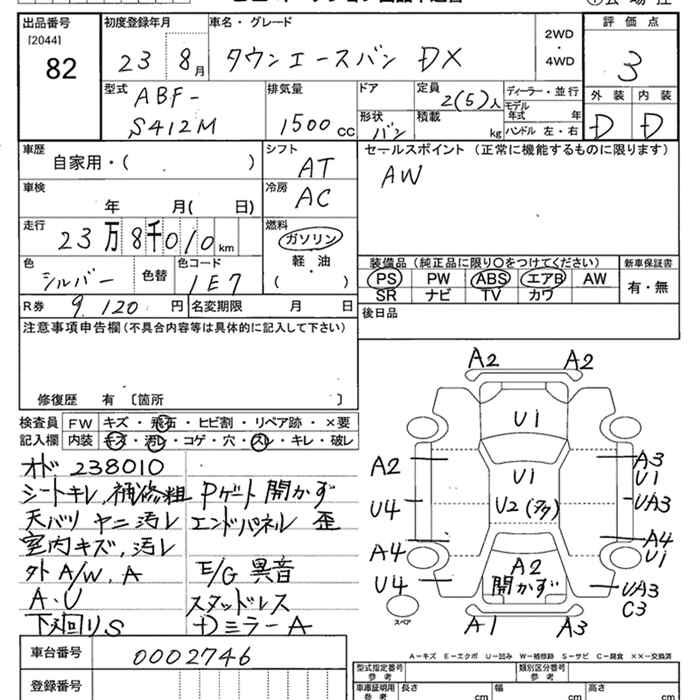 出品番号
[2044]
82
初度登録年月
23 8月
車名・グレード
タウンエースバン DX
2WD
・
4WD
評価点
3
外装 内装
D D
型式
ABF-
S412M
排気量
1500cc
ドア
形状
バン
定員
2(5)人
積載
kg
ディーラー・並行
モデル
年式 年
ハンドル 左・右
車歴
自家用・( )
車検
年 月( 日)
走行
23万8千010km
色
シルバー
色替
色コード
1E7
シフト
AT
冷房
AC
燃料
ガソリン
軽・油
( )
セールスポイント (正常に機能するものに限ります)
AW
装備品(純正品に限り○をつけてください)
PS PW ABS エアB AW
SR ナビ TV カワ
新車保証書
有・無
R券 9,120円
名変期限 月 日
後日品
注意事項申告欄(不具合内容等は具体的に記入して下さい)
修復歴 有〔箇所 〕
検査員
記入欄
FW キズ・飛石・ヒビ割・リペア跡・×要
内装 キズ・汚レ・コゲ・穴・スレ・キレ・破レ
オド 238010
シートキレ,補修粗 Pゲート開かず
天バツ ヤニ汚レ エンドパネル 歪
室内キズ,汚レ
外 A/W,A E/G 異音
A・U スタッドレス
下廻りS ナ)ミラーA
A2 A2
U1
A2 U1 A3
U1
U4 U2(多) UA3
A4 A2 A4
U1
U4 開かず UA3
C3
スペア
A1 A3
A−キズ E−エクボ U−凹み W−補修跡 S−サビ C−腐食 ××−交換済
車台番号 0002746
登録番号
型式指定番号
参考
類別区分番号
参考
車庫証明用
参考
長さ cm 幅 cm 高さ cm